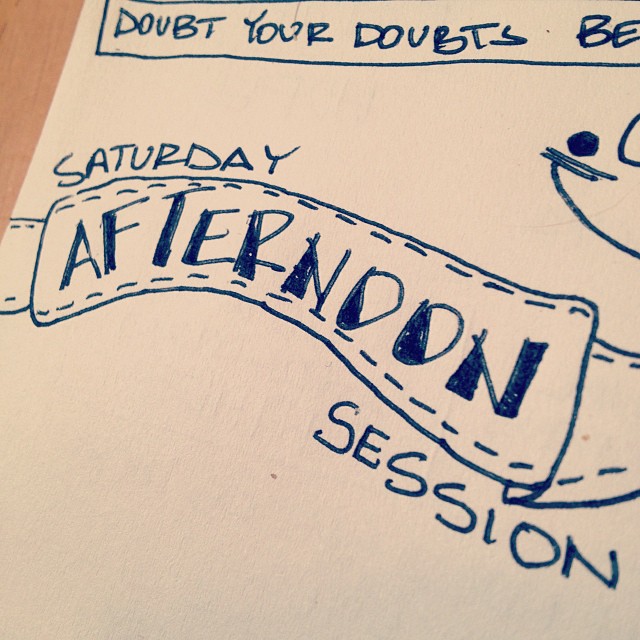 DOUBT YOUR DOUBTS BE
SATURDAY
AFTERNOON
SESSION